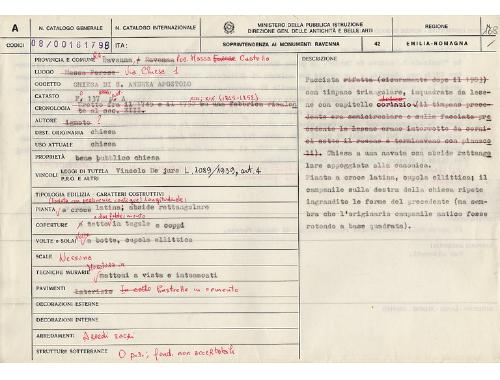 A
N. CATALOGO GENERALE
N. CATALOGO INTERNAZIONALE
MINISTERO DELLA PUBBLICA ISTRUZIONE
DIREZIONE GEN. DELLE ANTICHITÀ E BELLE ARTI
REGIONE
168
CODICI 08/00161798 ITA: SOPRINTENDENZA AI MONUMENTI RAVENNA 42 EMILIA-ROMAGNA
PROVINCIA E COMUNE Ravenna, Ravenna Massa Castello
LUOGO Massa Forese Via Chiesa 1
OGGETTO CHIESA DI S. ANDREA APOSTOLO
CATASTO F. 137 p. A
CRONOLOGIA
AUTORE ignoto
DEST. ORIGINARIA chiesa
USO ATTUALE chiesa
PROPRIETÀ bene pubblico chiesa
VINCOLI LEGGI DI TUTELA Vincolo De jure L. 1089/1939, art. 4
P.R.G. E ALTRI
TIPOLOGIA EDILIZIA - CARATTERI COSTRUTTIVI
PIANTA a croce latina; abside rettangolare
COPERTURE tettovia tegole e coppi
VOLTE o SOLAI a botte, cupola ellittica
SCALE Nessuna
TECNICHE MURARIE mattoni a vista e intonacati
PAVIMENTI laterizio In cotto Piastrelle in cemento
DECORAZIONI ESTERNE
DECORAZIONI INTERNE
ARREDAMENTI Arredi sacri
STRUTTURE SOTTERRANEE fond. non accertabili
DESCRIZIONE
Facciata rifatta (sicuramente dopo il 1903)
con timpano triangolare, inquadrata da lese-
ne con capitello corinzio (il timpano prece-
dente era semicircolare e sulla facciata pre
cedente le lesene erano interrotte da corni-
ci sotto il rosone e terminavano con pinnaco
li). Chiesa a una navata con abside rettango
lare appoggiata alla canonica.
Pianta a croce latina, cupola ellittica; il
campanile sulla destra della chiesa ripete
ingrandite le forme del precedente (ma sem-
bra che l'originaria campanile antico fosse
rotondo a base quadrata).